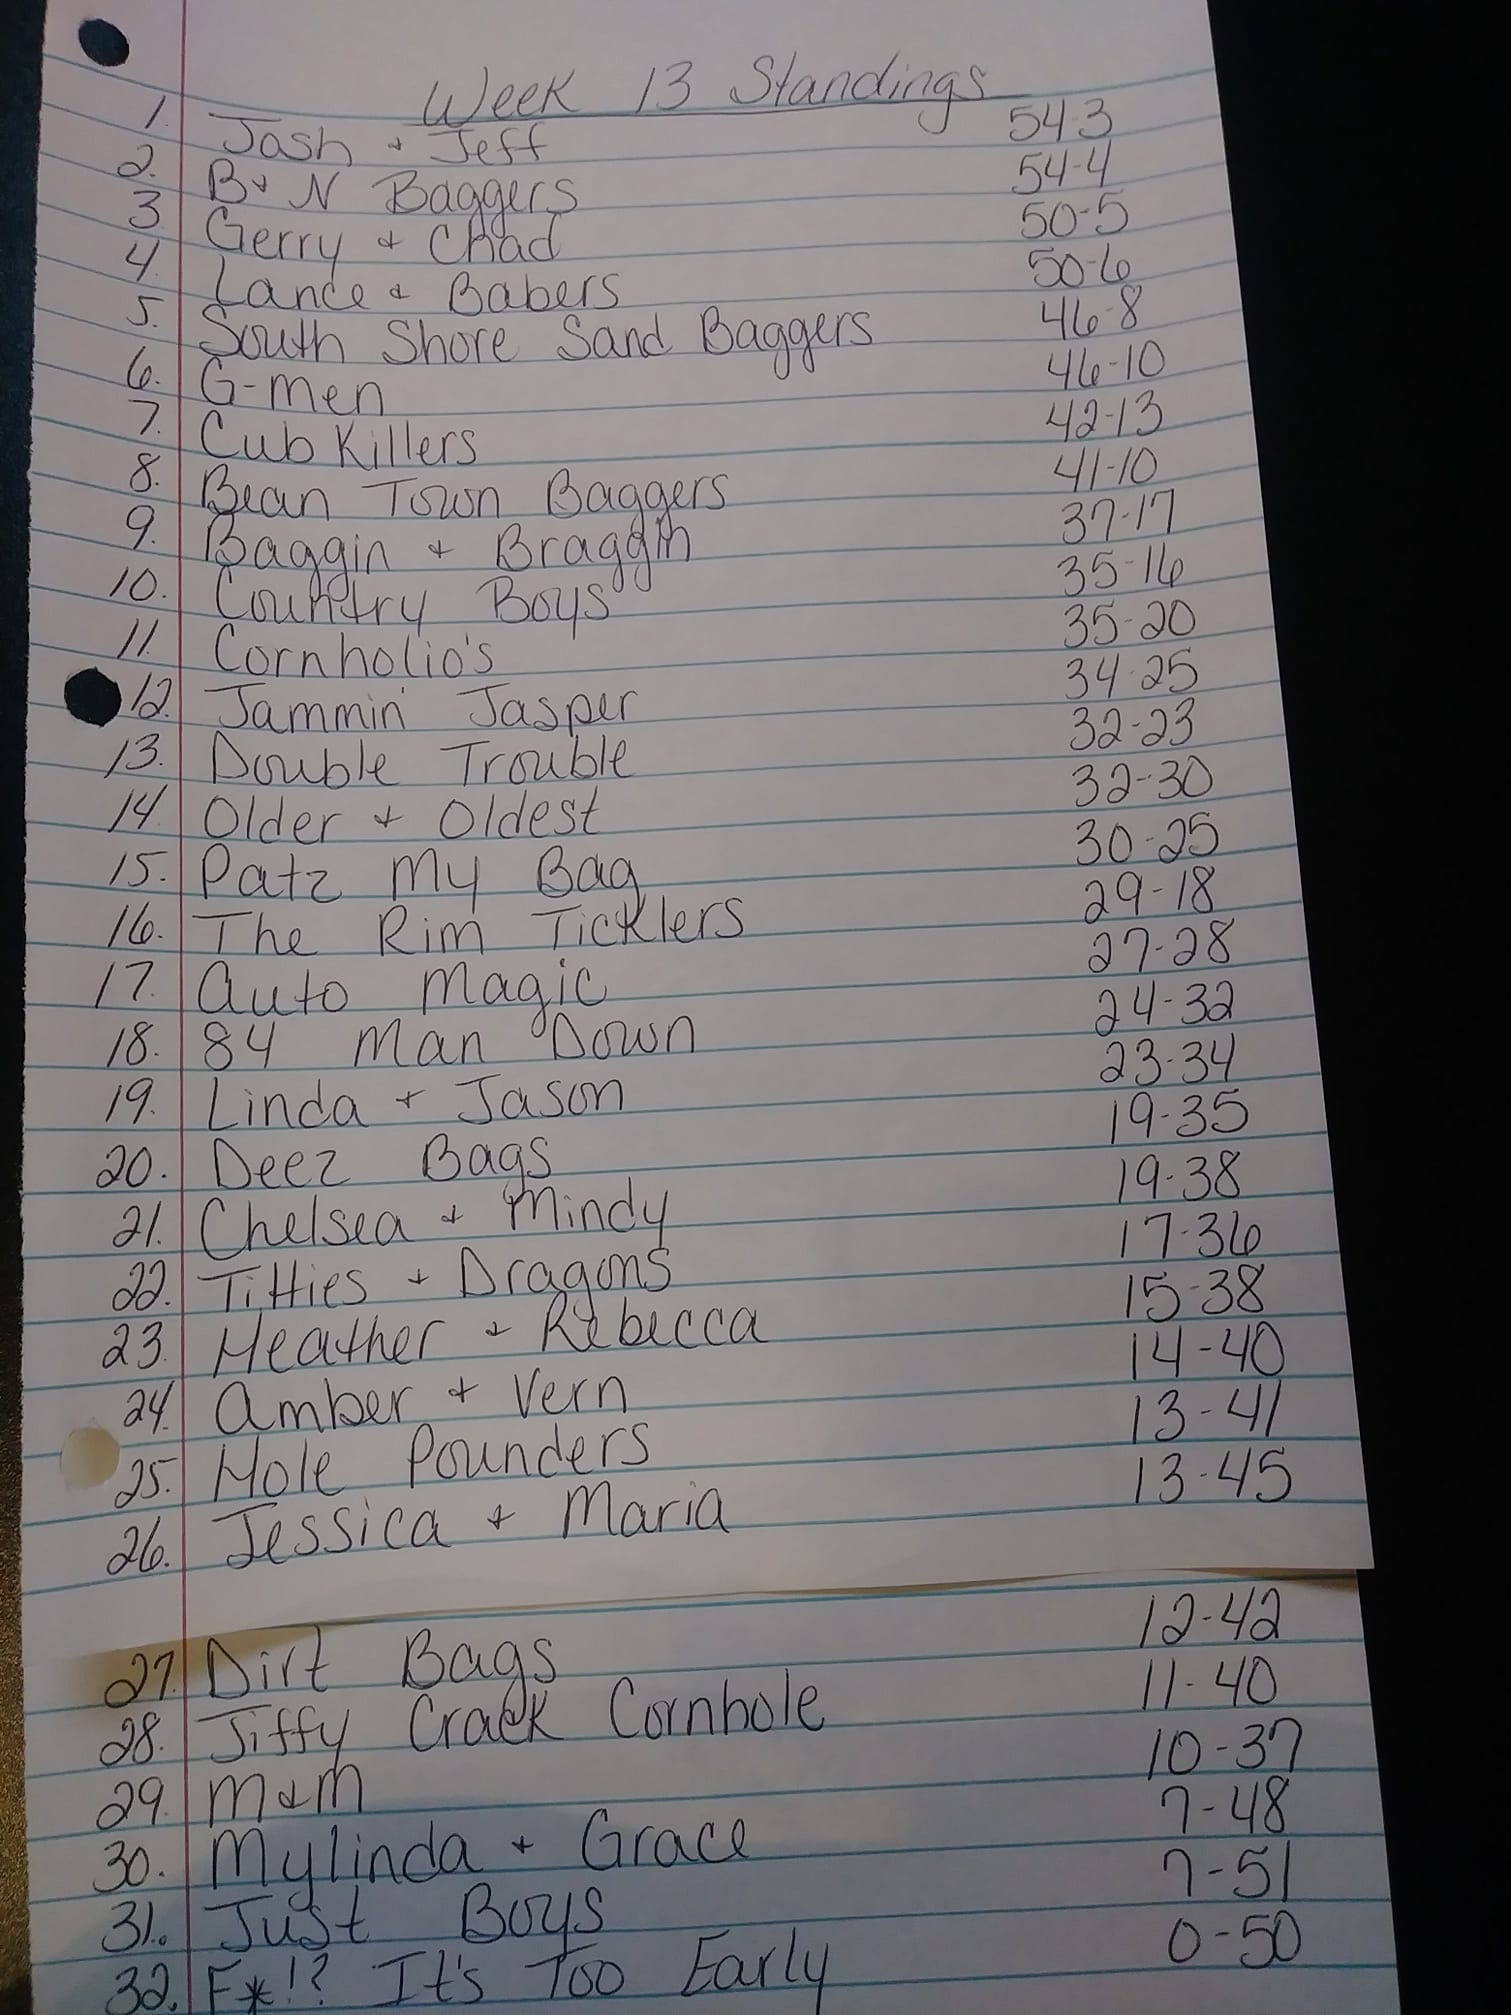 Week 13 Standings
1. Josh + Jeff 54-3
2. B+N Baggers 54-4
3 Gerry + Chad 50-5
4. Lance + Babers 50-6
5. South Shore Sand Baggers 46-8
6. G-men 46-10
7. Cub Killers 42-13
8. Bean Town Baggers 41-10
9. Baggin + Braggin 37-17
10. Country Boys 35-16
11. Cornholio's 35-20
12. Jammin' Jasper 34-25
13. Double Trouble 32-23
14. Older + Oldest 32-30
15. Patz My Bag 30-25
16. The Rim Ticklers 29-18
17. Auto Magic 27-28
18. 84 Man Down 24-32
19. Linda + Jason 23-34
20. Deez Bags 19-35
21. Chelsea + Mindy 19-38
22. Titties + Dragons 17-36
23. Heather + Rebecca 15-38
24. Amber + Vern 14-40
25. Hole Pounders 13-41
26. Jessica + Maria 13-45
27. Dirt Bags 12-42
28. Jiffy Crack Cornhole 11-40
29. M+M 10-37
30. Mylinda + Grace 7-48
31. Just Boys 7-51
32. F*!? It's Too Early 0-50